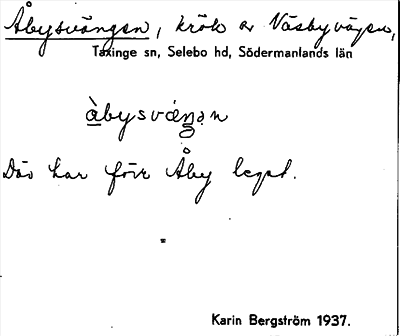 Åbysvängen, krök av Näsbyvägen,
Taxinge sn, Selebo hd, Södermanlands län
åbysväŋən
Där har förr Åby legat.
Karin Bergström 1937.